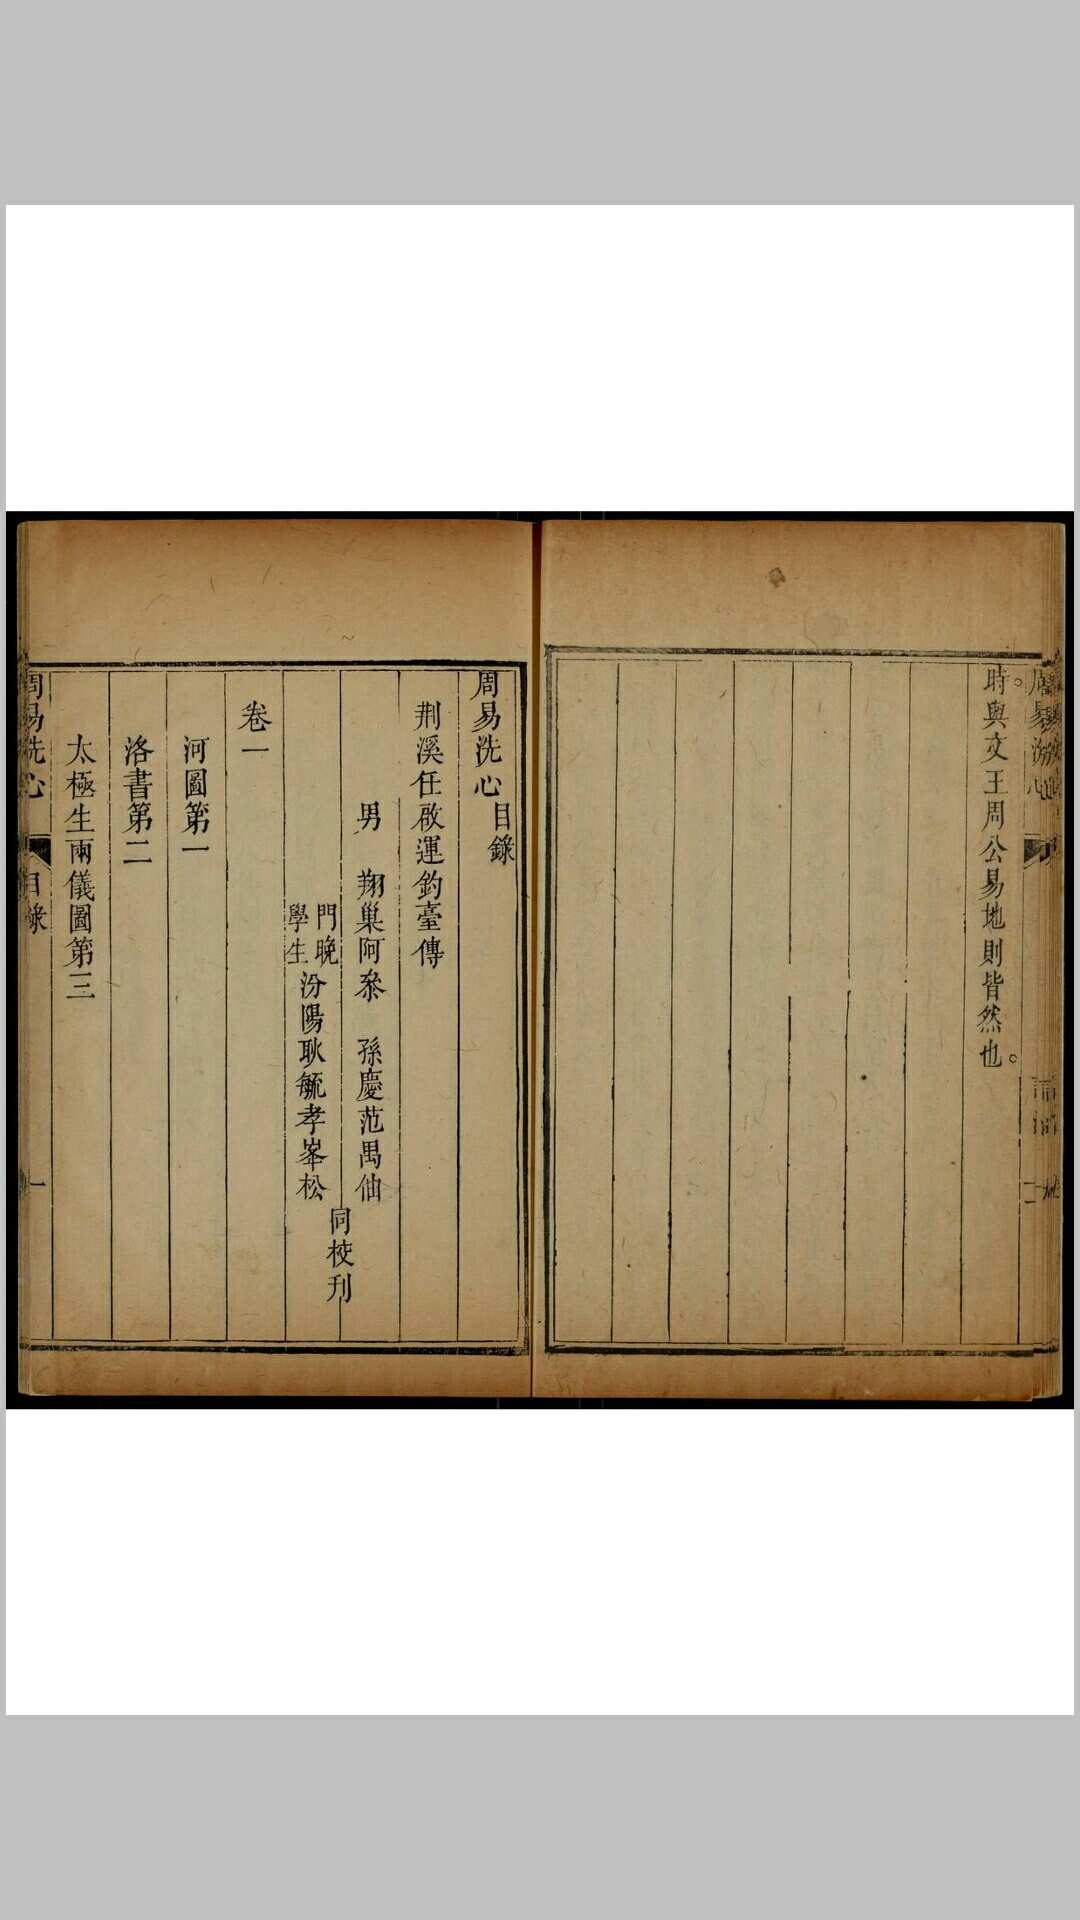 時與文王周公易地則皆然也。
周易洗心目錄
荆溪任啟運釣臺傳
男 翔巢阿叅 孫慶范禺仙
門晚學生汾陽耿毓孝峯松
同校刊
卷一
河圖第一
洛書第二
太極生兩儀圖第三
周易洗心 目錄 一